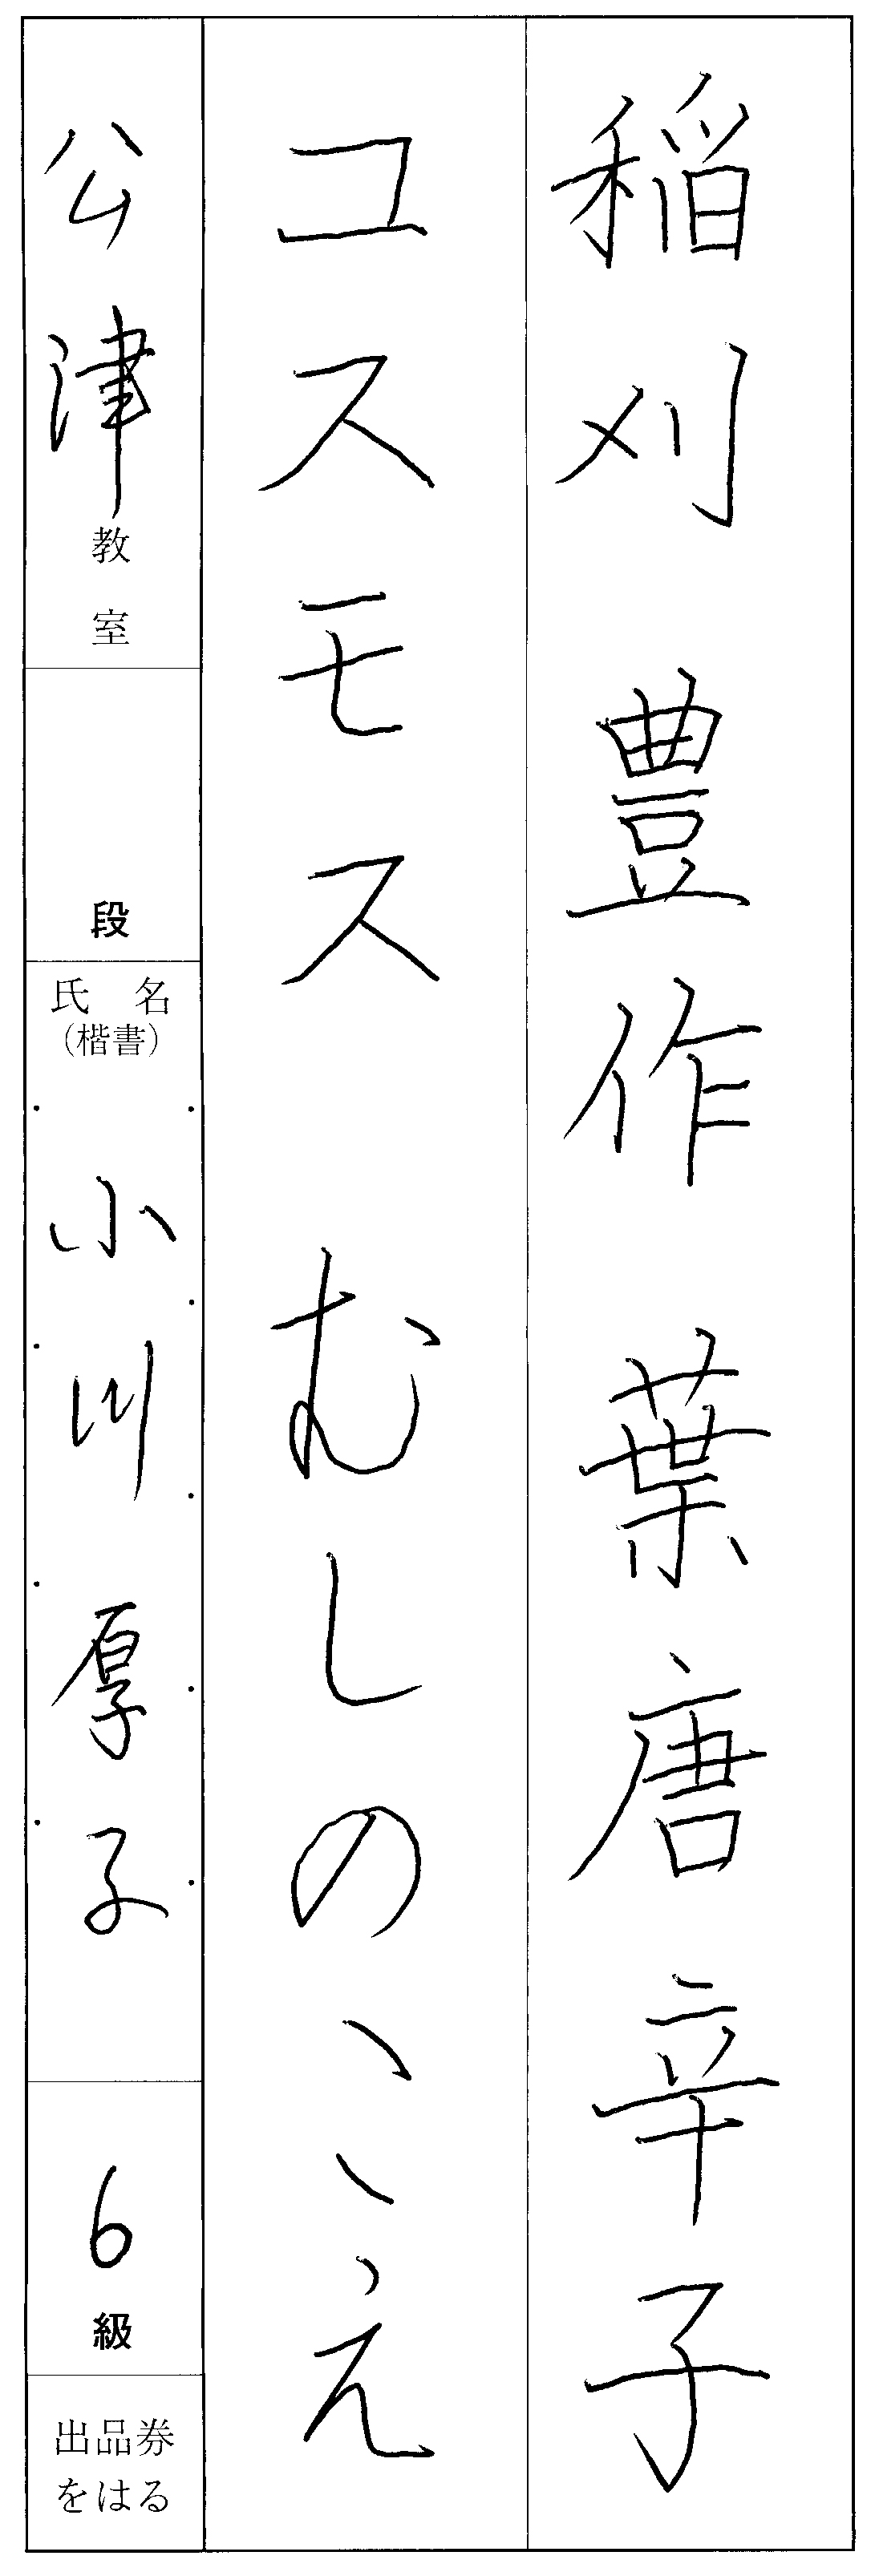 稲刈 豊作 葉唐辛子
コスモス むしのこえ
公津教室
段
氏名
(楷書)
小川厚子
6級
出品券
をはる